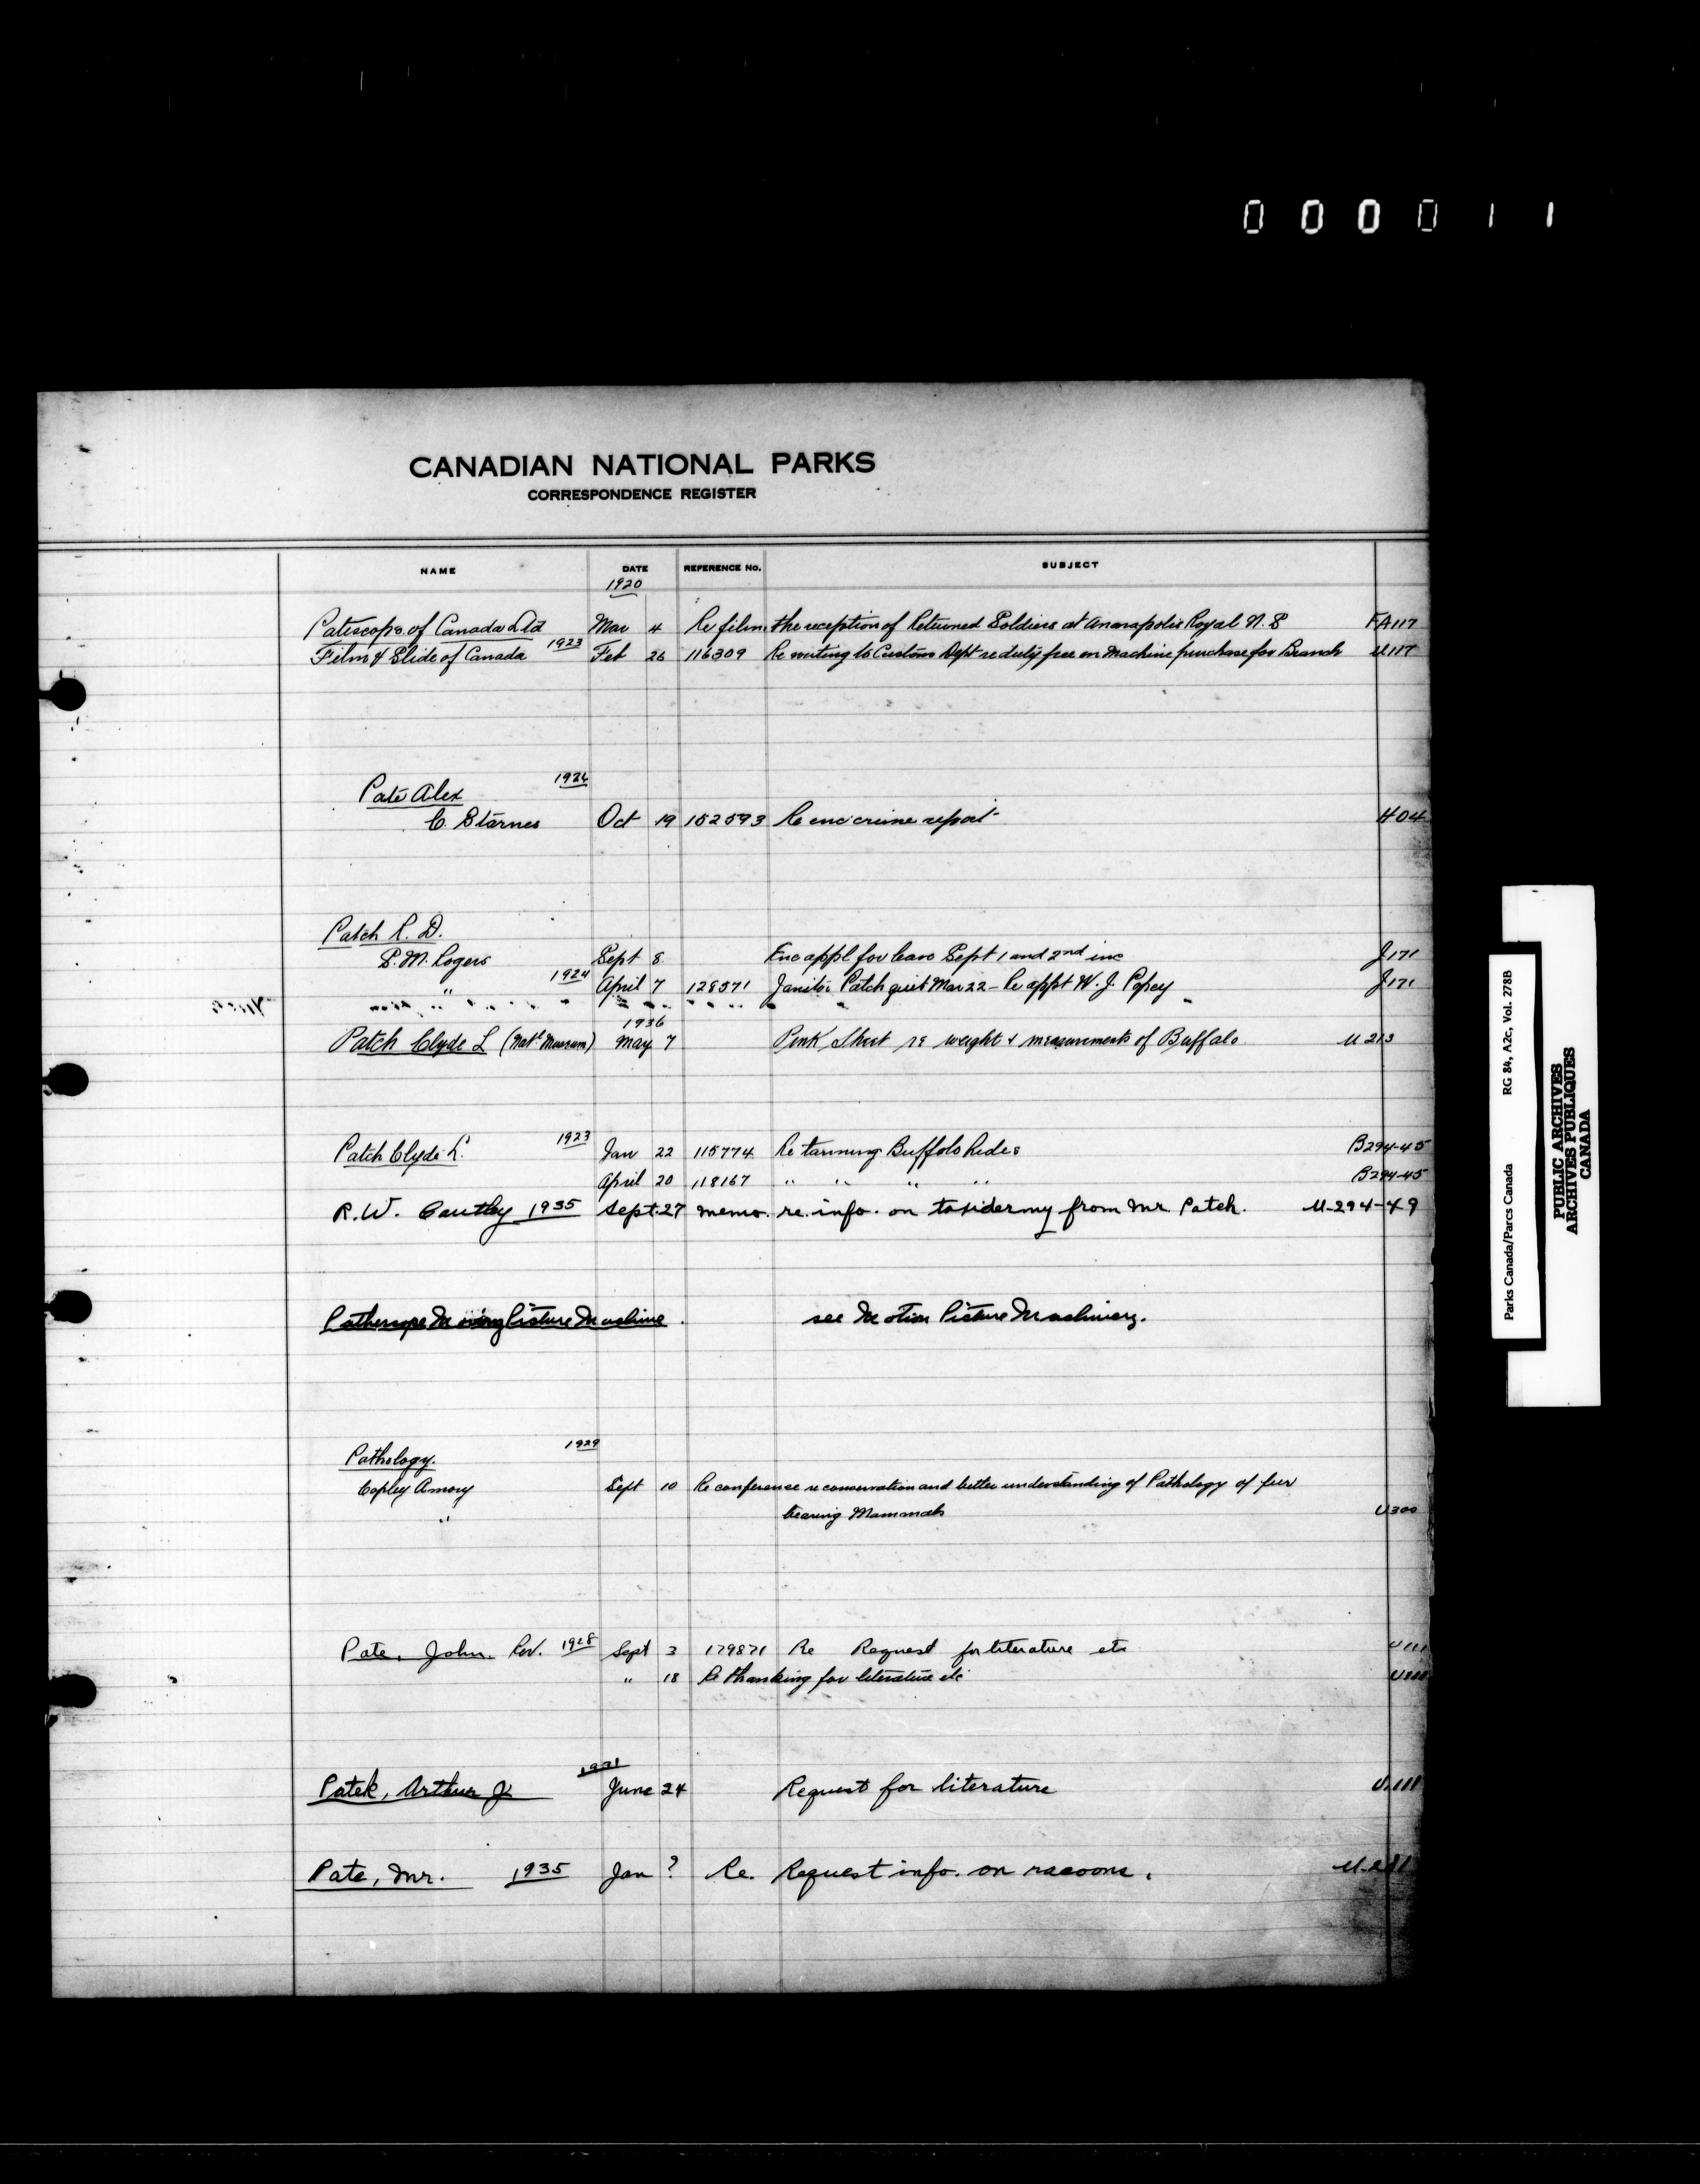 000011
CANADIAN NATIONAL PARKS
CORRESPONDENCE REGISTER
NAME DATE REFERENCE No. SUBJECT
1920
Patescope of Canada Ltd Mar 4 Re film the reception of Returned Soldiers at Anarapolis Royal N. S FA117
Film & Slide of Canada 1923 Feb 26 116309 Re writing to Customs Dept re duty free on Machine purchase for Branch U117
Pate Alex 1926
C. Starnes Oct 19 152593 Re enc crime report H04
Patch R. D.
S. M. Rogers Sept 8 Enc appl for leave Sept 1 and 2nd inc J171
" 1924 April 7 128571 Janitor Patch quit Mar 22 - Re appt W. J. J171
1936
Patch Clyde L (Natl Museum) May 7 Pink Sheet re weight & measurements of Buffalo U 213
Patch Clyde L. 1923 Jan 22 115774 Re tanning Buffalo Hides B294-45
April 20 118167 " " " " B294-45
R.W. Cautley 1935 Sept. 27 memo. re. info. on tasidermy from Mr. Patch. U-294-49
Pathescope Moving Picture Machine. see Motion Picture Machinery.
Pathology. 1929
Copley Amory Sept 10 Re conference re conservation and better understanding of Pathology of fur
" bearing Mammals U300
Pate, John. Rev. 1928 Sept 3 179871 Re Request for literature etc U111
" 18 Re thanking for literature etc
1931
Patek, Arthur J June 24 Request for literature U.111
Pate, Mr. 1935 Jan ? Re. Request info. on racoons.
Parks Canada/Parcs Canada RG 84, A2c, Vol. 278B
PUBLIC ARCHIVES
ARCHIVES PUBLIQUES
CANADA